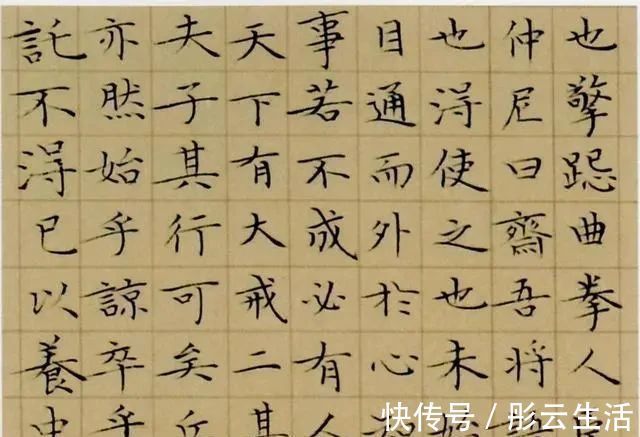 也擎跽曲拳人
仲尼曰齋吾將
也得使之也未
目通而外於心
事若不成必有人
天下有大戒二其
夫子其行可矣丘
亦然始乎諒卒乎
託不得已以養中
快传号 / 彤云生活